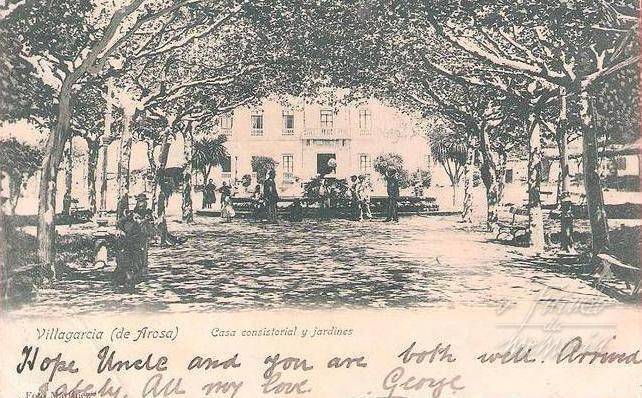 Villagarcia (de Arosa) Casa consistorial y jardines
Hope Uncle and you are both well Arrived
safely, All my love. George